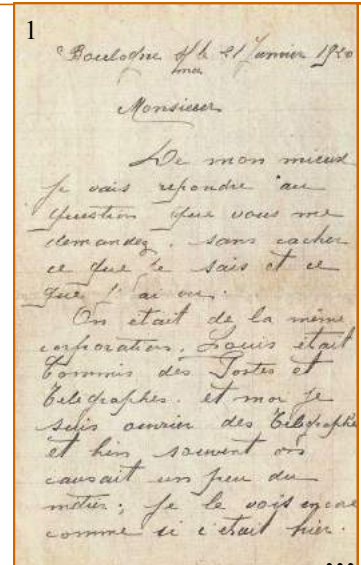 1
Boulogne s/ le 21 Janvier 1920
mer
Monsieur
De mon mieux
je vais repondre au
question que vous me
demandez, sans cacher
ce que je sais et ce
que j'ai vu.
On etait de la même
corporation, Louis était
Commis des Postes et
Télégraphes. et moi je
suis ouvrier des Télégraphe
et bien souvent on
causait un peu du
métier; je le vois encore
comme si c'était hier.
...